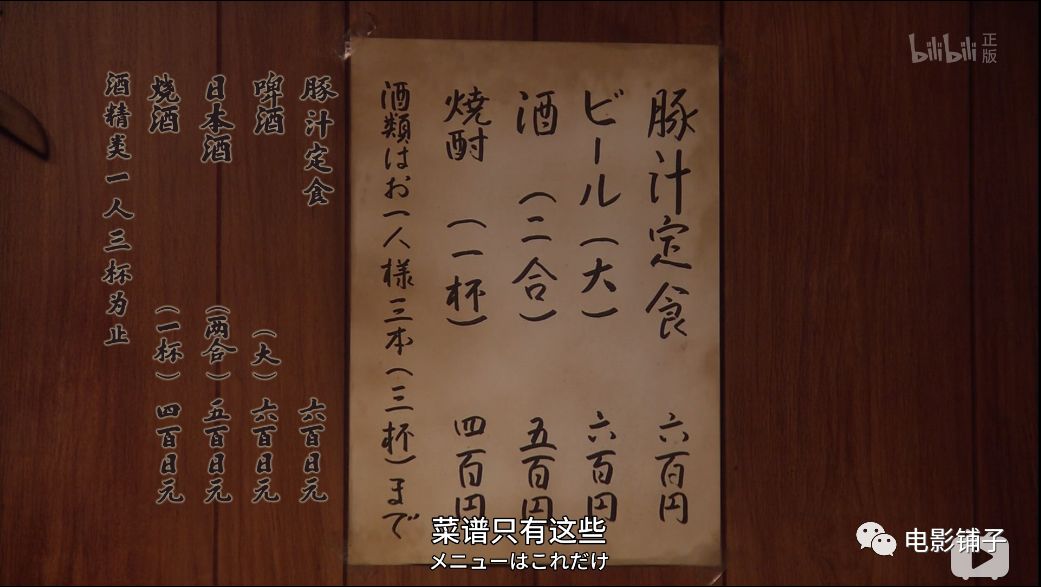 豚汁定食 六百円
ビール（大） 六百円
酒 （二合） 五百円
焼酎 （一杯） 四百円
酒類はお一人様三本（三杯）まで
豚汁定食 六百日元
啤酒 （大） 六百日元
日本酒 （两合） 五百日元
烧酒 （一杯） 四百日元
酒精类一人三杯为止
菜谱只有这些
メニューはこれだけ
bilibili 正版
电影铺子